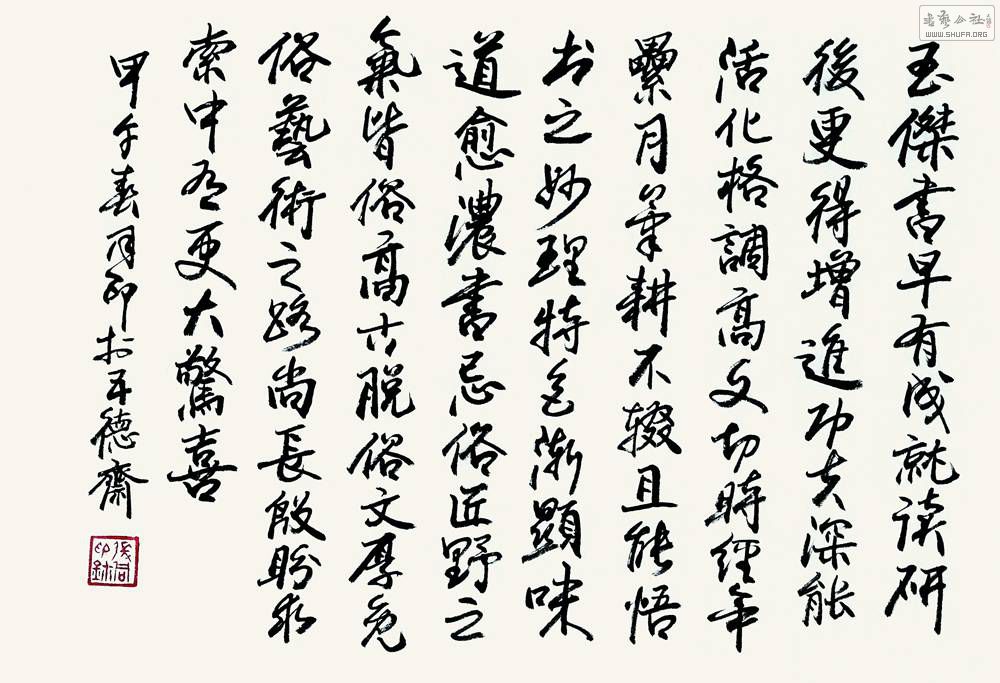 玉傑書早有成就读研
後更得增進功夫深能
活化格調高文切時經年
纍月筆耕不辍且能悟
书之妙理特色渐顯味
道愈濃書忌俗匠野之
氣皆俗高古脱俗文厚免
俗藝術之路尚長殷盼求
索中有更大驚喜
甲午春月印於平德齋
书艺公社
WWW.SHUFA.ORG